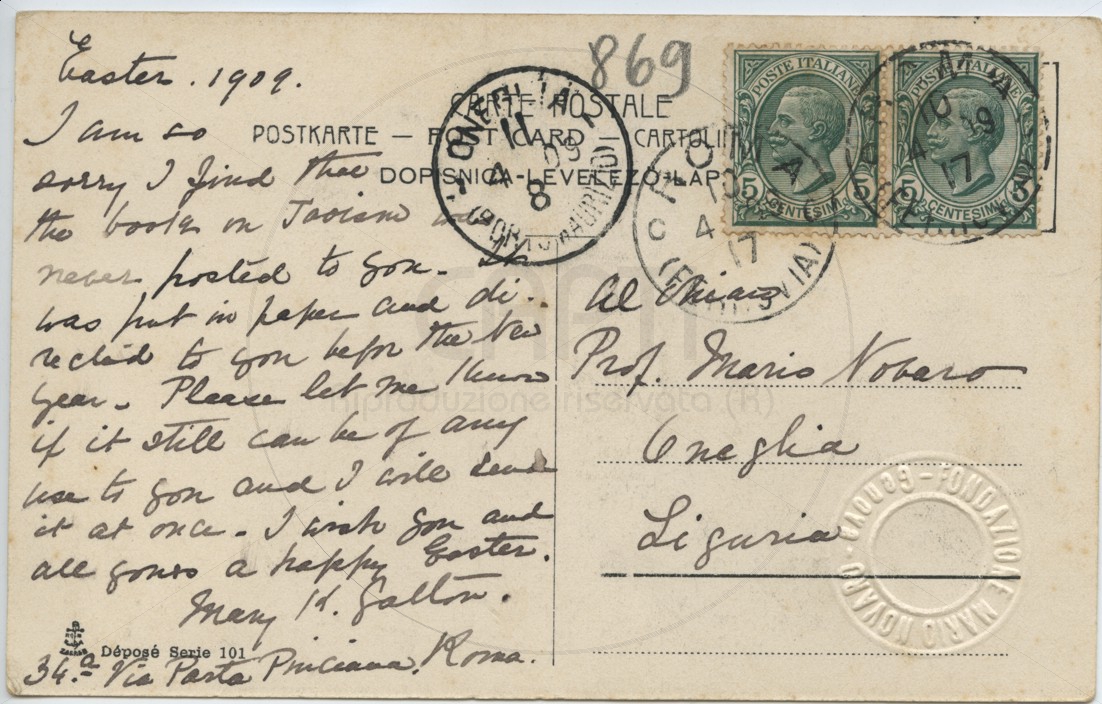 Easter. 1909.
I am so
sorry I find that
the books on Taoism was
never posted to you. It
was put in paper and di-
rected to you before the New
Year. Please let me know
if it still can be of any
use to you and I will send
it at once. I wish you and
all yours a happy Easter.
Mary K. Galton.
34.a Via Porta Pinciana. Roma.
Déposé Serie 101
869
CARTE POSTALE
POSTKARTE — POST CARD — CARTOLINA
DOPISNICA-LEVELEZŐ-LAP
ONEGLIA
11
4 09
8
(PORTO MAURIZIO)
ROMA
10
4
17
(FERROVIA)
ROMA
10
4 09
17
POSTE ITALIANE
5 CENTESIMI 5
POSTE ITALIANE
5 CENTESIMI 5
Al Chiar
Prof. Mario Novaro
Oneglia
Liguria
FONDAZIONE MARIO NOVARO - GENOVA -
riproduzione riservata (R)